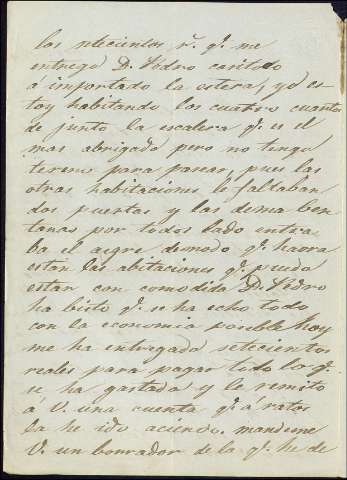 los setecientos r.^s q.^e me
entregó D. Pedro
á importado la estera, yo es-
toy habitando los cuatro cuartos
de junto la escalera q.^e es el
mas abrigado pero no tengo
tereno para pasear, pues las
otras habitaciones le faltaban
dos puertas y las demas ben-
tanas por todos lado entra-
ba el aegre demodo q.^e haora
estan las abitaciones q.^e pueda
estar con comodida D. Pedro
ha bisto q.^e se ha echo todo
con la economia posible hoy
me ha entregado setecientos
reales para pagar todo lo q.^e
se ha gastado y le remito
á V. una cuenta q.^e á ratos
la he ido aciendo. mandeme
V. un borrador de la q.^e he de